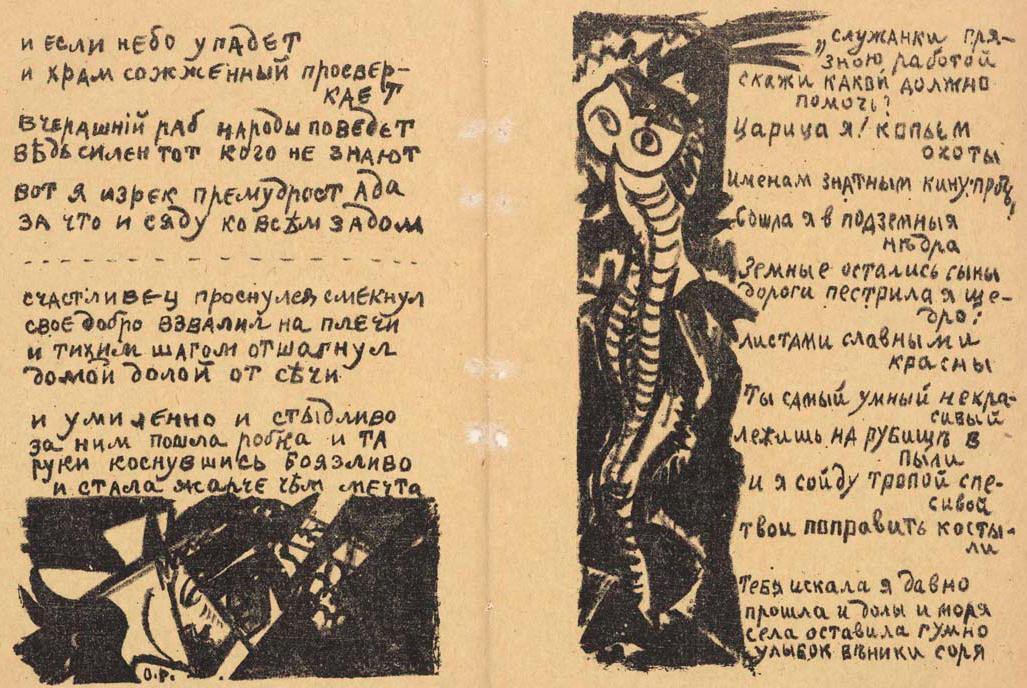 и если небо упадет
и храм сожженный просвер-
кает
вчерашній раб народы поведет
вѣдь силен тот кого не знают
вот я изрек премудрост Ада
за что и сяду ко всѣм задом
счастливец проснулся, смекнул
свое добро взвалил на плечи
и тихим шагом отшагнул
домой долой от сѣчи
и умиленно и стыдливо
за ним пошла робка и та
руки коснувшись боязливо
и стала жарче чѣм мечта
О.Р.
„служанки гря-
зною работой
скажи какой должно
помочь?
Царица я! копьем
охоты
именам знатным кину:прочь,
Сошла я в подземныя
нѣдра
Земные остались сыны
дороги пестрила я ще-
дро:
листами славными
красны
Ты самый умный некра-
сивый
лежишь на рубищѣ в
пыли
и я сойду тропой спе-
сивой
твои поправить косты-
ли
Тебя искала я давно
прошла и долы и моря
села оставила гумно
улыбок вѣники соря